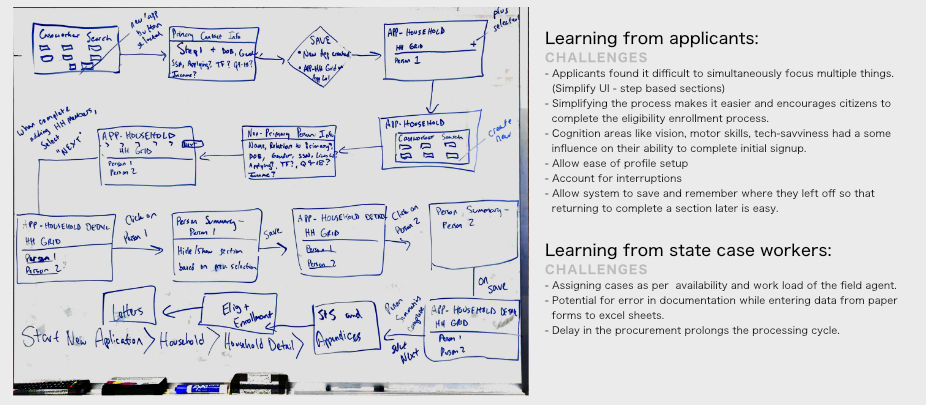 Caseworker Search
"new" app
button
selected
Primary Contact Info
Step 1 + DOB, Gender,
SSN, Applying? TF? Q9-18?
Income?
SAVE
• New App created
• APP-HH Grid
APP-HOUSEHOLD
HH GRID +
Person 1
plus
selected
When complete
adding HH members,
select
"NEXT"
APP-HOUSEHOLD
HH GRID
Person 1
Person 2
Non-Primary Person Info
Name, Relation to Primary?
DOB, Gender, SSN,
Applying? TF? Q9-18?
Income?
APP-HOUSEHOLD
Caseworker Search
create
new
APP-HOUSEHOLD DETAIL
HH GRID
Person 1
Person 2
Click on
Person 1
Person Summary-
Person 1
Hide/show section
based on prev selection
Save
APP-HOUSEHOLD DETAIL
HH GRID
Person 1
Person 2
Click on
Person 2
Person Summary-
Person 2
on
save
APP-HOUSEHOLD DETAIL
HH GRID
Person 1
Person 2
Person
Summaries
complete
Select
Next
S+S and
Apendices
Elig +
Enrollment
Letters
Start New Application > Household > Household Detail >
Learning from applicants:
CHALLENGES
- Applicants found it difficult to simultaneously focus multiple things.
(Simplify UI - step based sections)
- Simplifying the process makes it easier and encourages citizens to
complete the eligibility enrollment process.
- Cognition areas like vision, motor skills, tech-savviness had a some
influence on their ability to complete initial signup.
- Allow ease of profile setup
- Account for interruptions
- Allow system to save and remember where they left off so that
returning to complete a section later is easy.
Learning from state case workers:
CHALLENGES
- Assigning cases as per availability and work load of the field agent.
- Potential for error in documentation while entering data from paper
forms to excel sheets.
- Delay in the procurement prolongs the processing cycle.